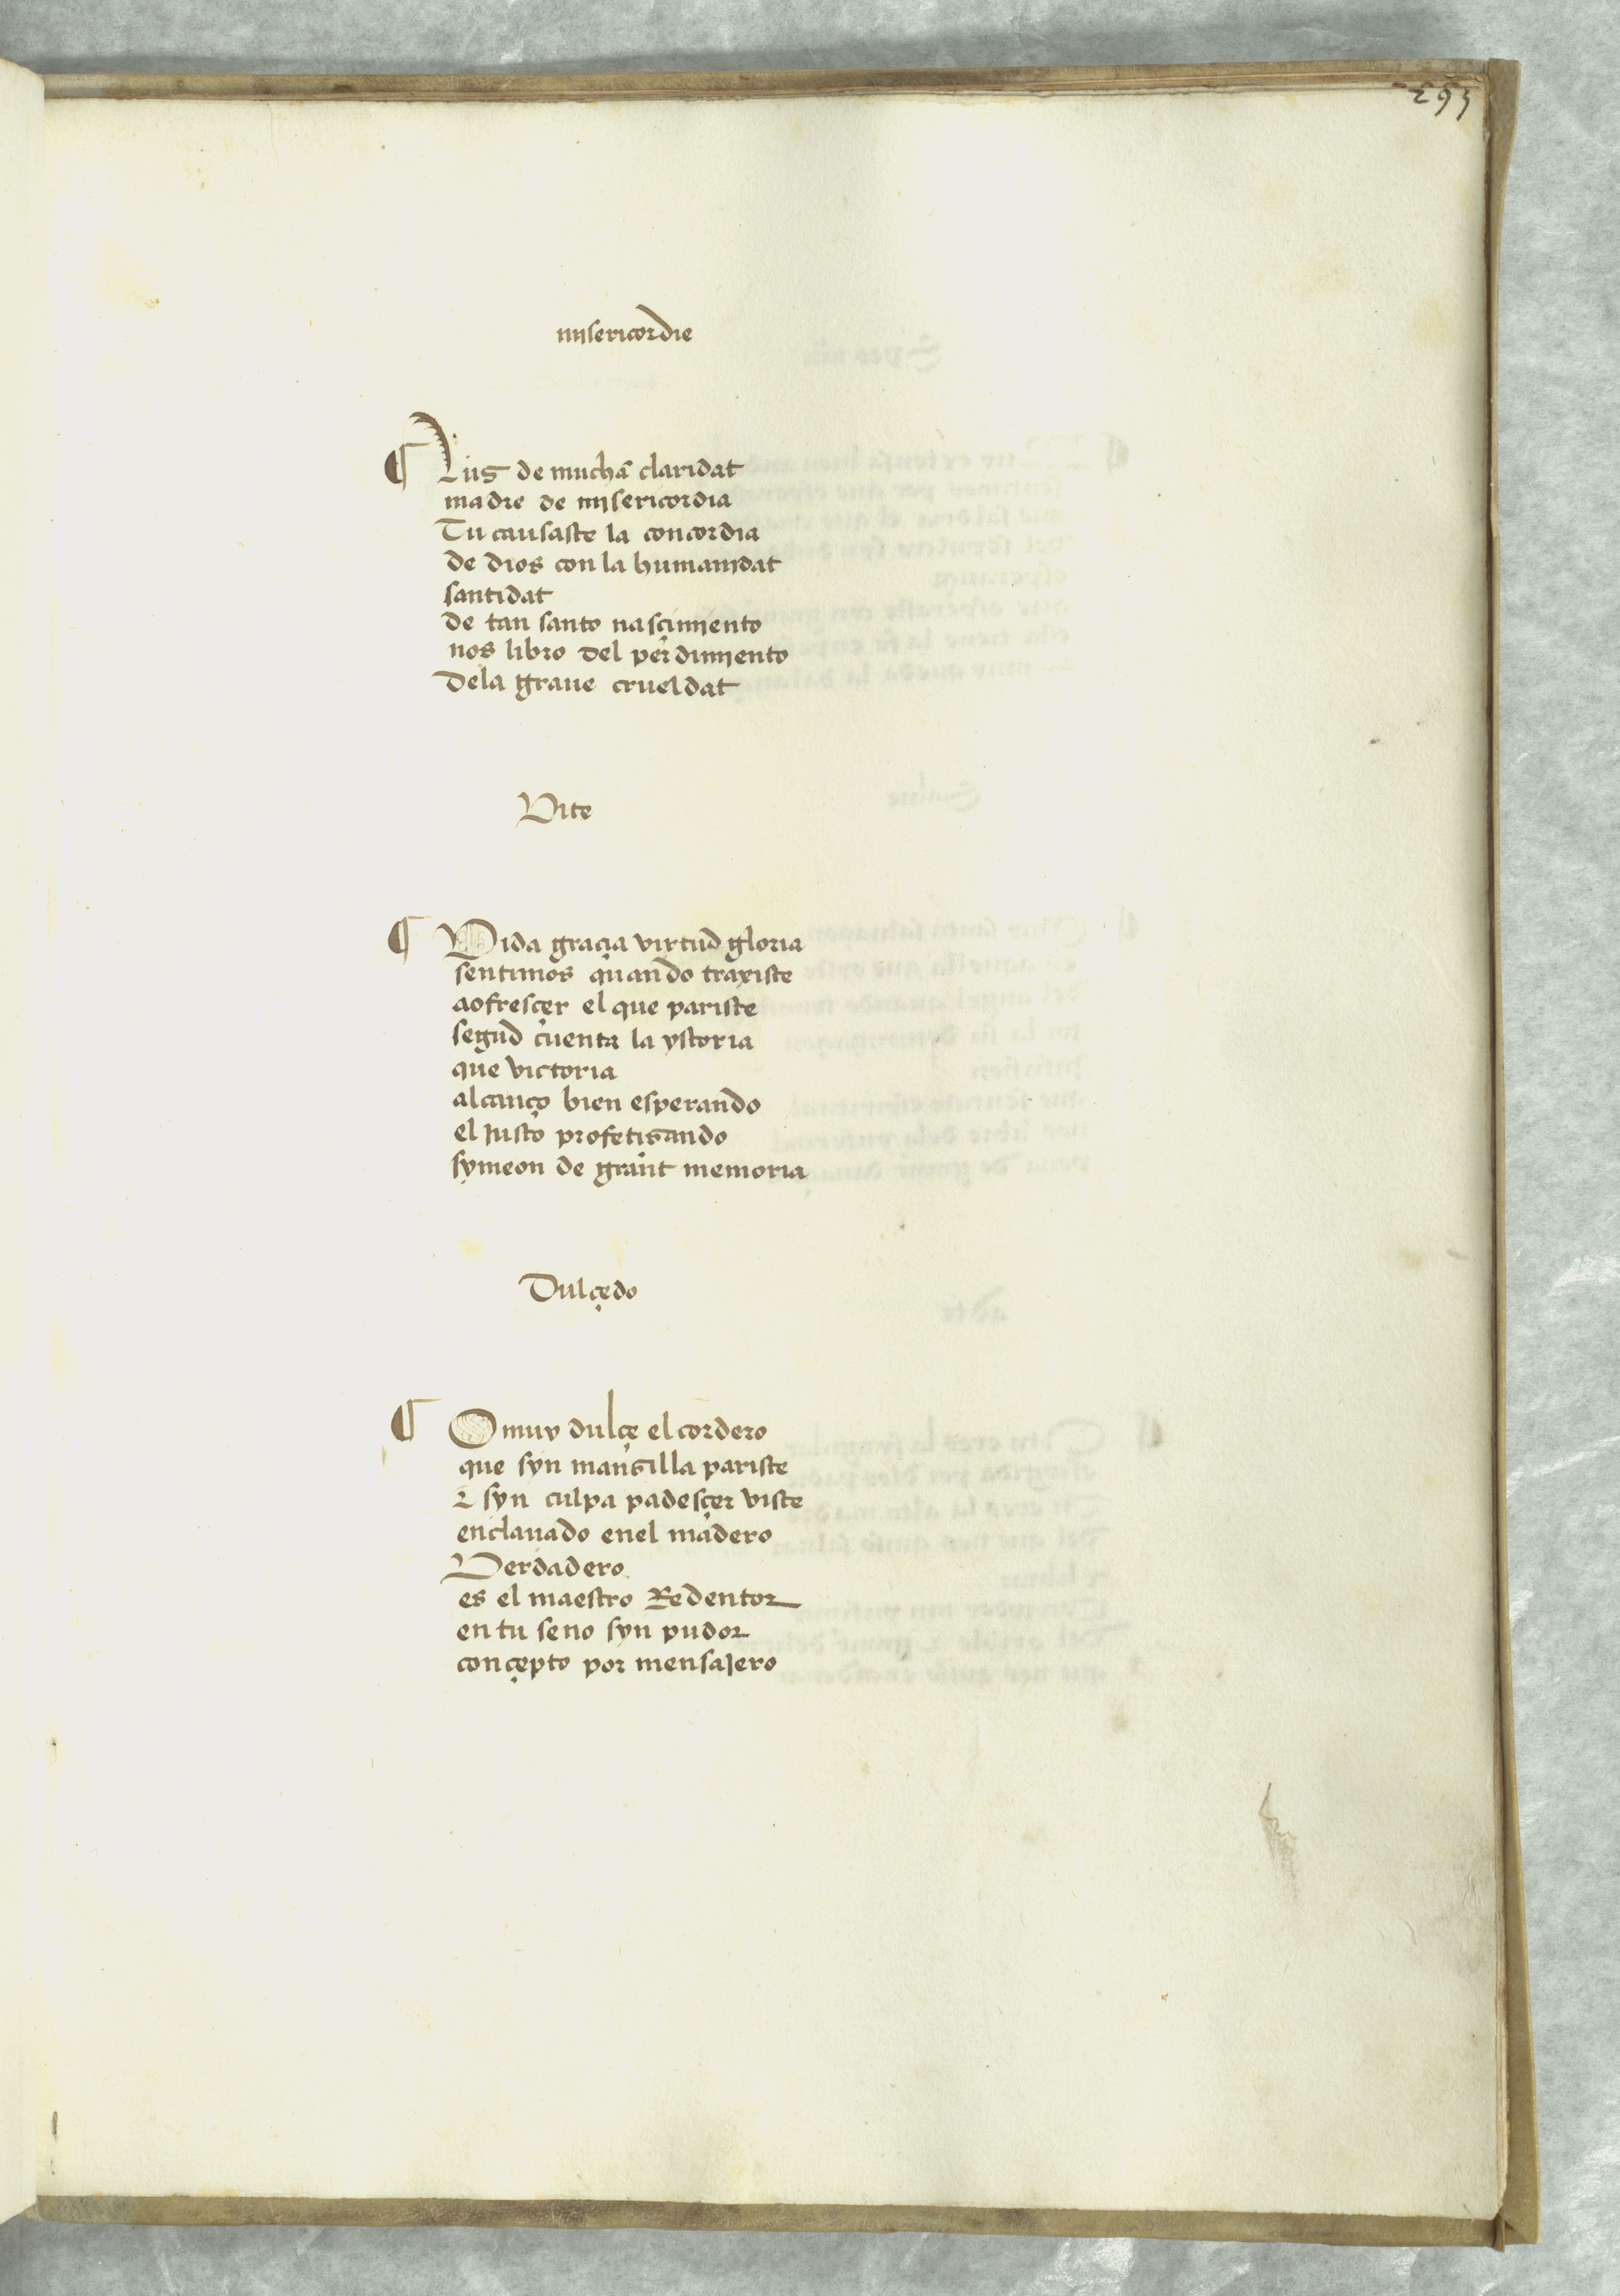 295
misericordie
¶ Lus de mucha claridat
madre de misericordia
Tu causaste la concordia
de dios con la humanidat
santidat
de tan santo nasçimiento
nos libro del perdimiento
dela graue crueldat
Vite
¶ Vida graçia virtud gloria
sentimos quando traxiste
aofresçer el que pariste
segud cuenta la ystoria
que victoria
alcanço bien esperando
el justo profetisando
symeon de grant memoria
Dulçedo
¶ O muy dulçe el cordero
que syn mansilla pariste
τ syn culpa padesçer viste
enclauado enel madero
Verdadero
es el maestro Redentor
en tu seno syn pudor
conçepto por mensajero